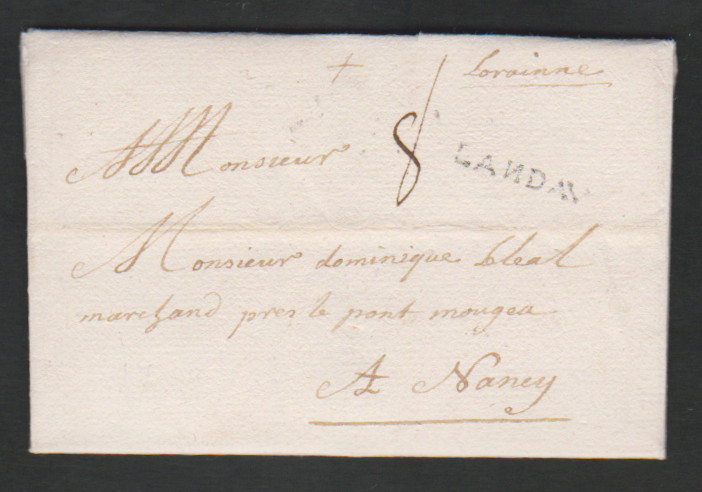 Lorainne
A Monsieur 8
LANDAV
Monsieur dominique bleal
marchand pres le pont mougea
A Nancy